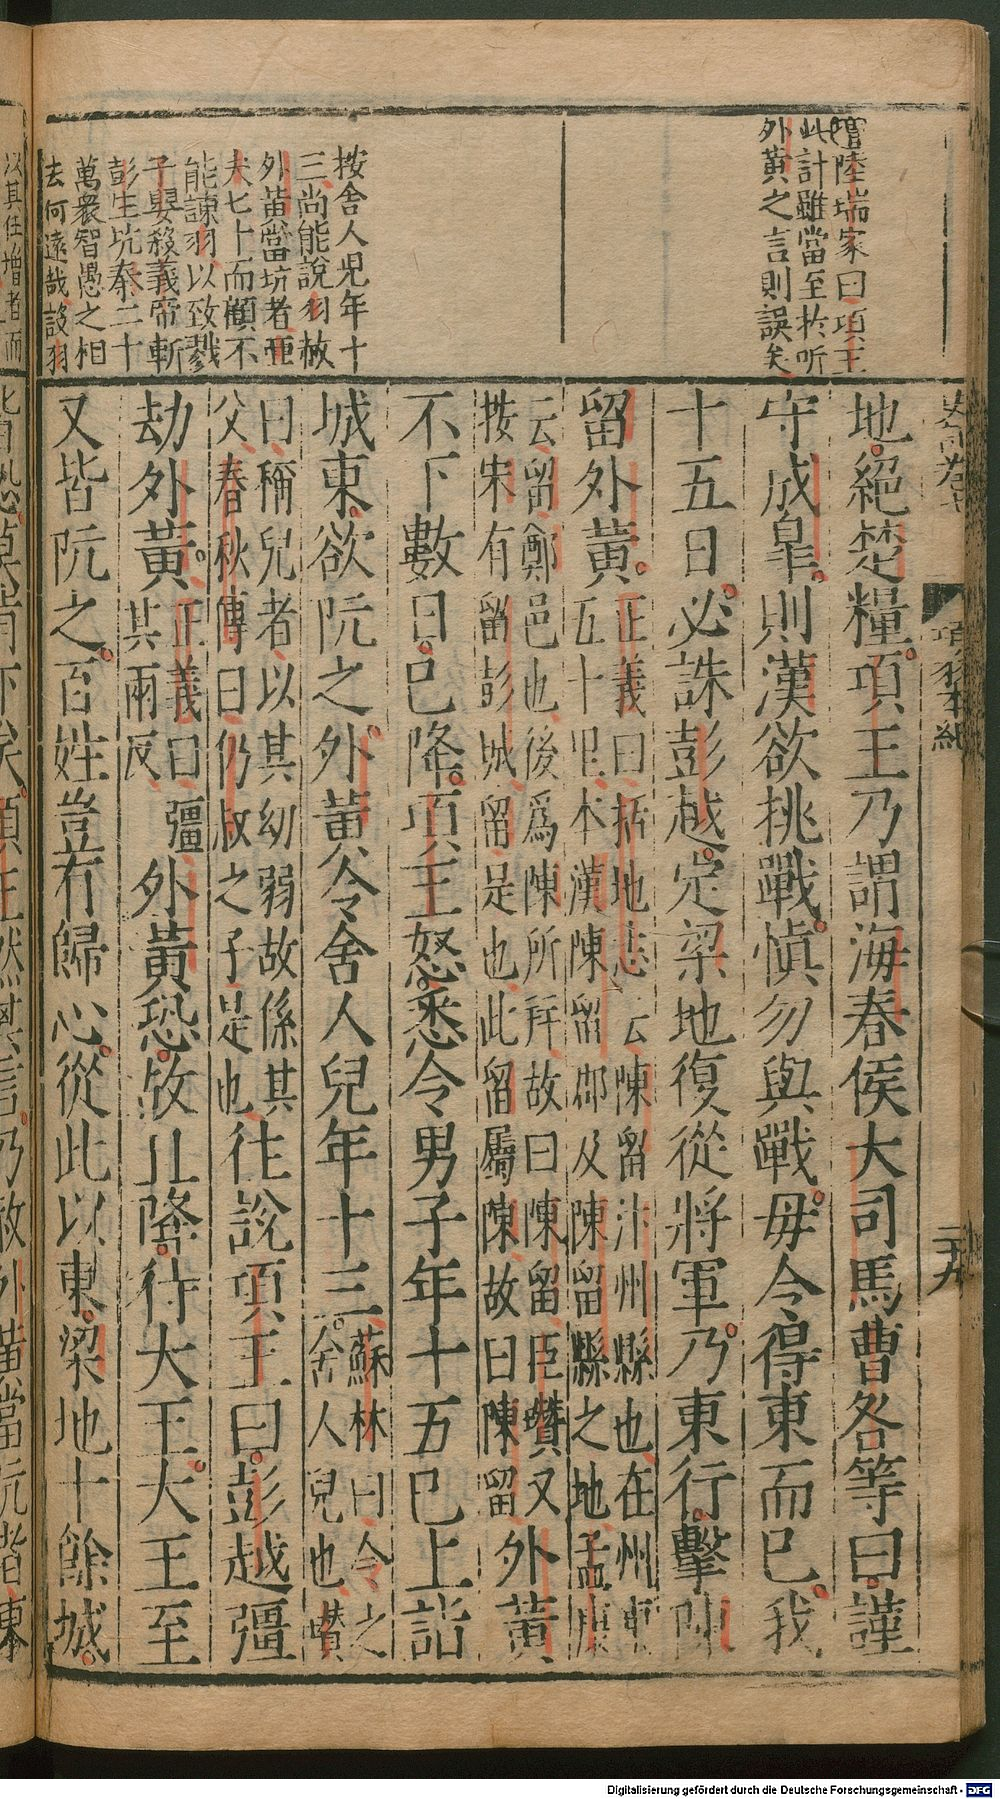 增陸瑞家曰項王
此計雖當至於听
外黃之言則誤矣
按舍人兒年十
三尚能說羽赦
外黃當坑者亞
夫七十而顧不
能諫羽以致戮
子嬰殺義帝斬
彭生坑秦二十
萬衆智愚之相
去何遠哉談羽
項羽本紀
二十九
地絕楚糧項王乃謂海春侯大司馬曹咎等曰謹
守成皐則漢欲挑戰愼勿與戰毋令得東而已我
十五日必誅彭越定梁地復從將軍乃東行擊陳
留外黃正義曰括地志云陳留汴州縣也在州東
五十里本漢陳留郡及陳留縣之地孟康
云留鄭邑也後爲陳所幷故曰陳留臣瓚又
按宋有留彭城留是也此留屬陳故曰陳留外黃
不下數日已降項王怒悉令男子年十五已上詣
城東欲阬之外黃令舍人兒年十三蘇林曰令之
舍人兒也瓚
曰稱兒者以其幼弱故係其
父春秋傳曰仍叔之子是也往說項王曰彭越彊
劫外黃正義曰彊
其兩反外黃恐故且降待大王大王至
又皆阬之百姓豈有歸心從此以東梁地十餘城
以其任增者而
項王然其言乃赦外黃當阬者東
Digitalisierung gefördert durch die Deutsche Forschungsgemeinschaft - DFG